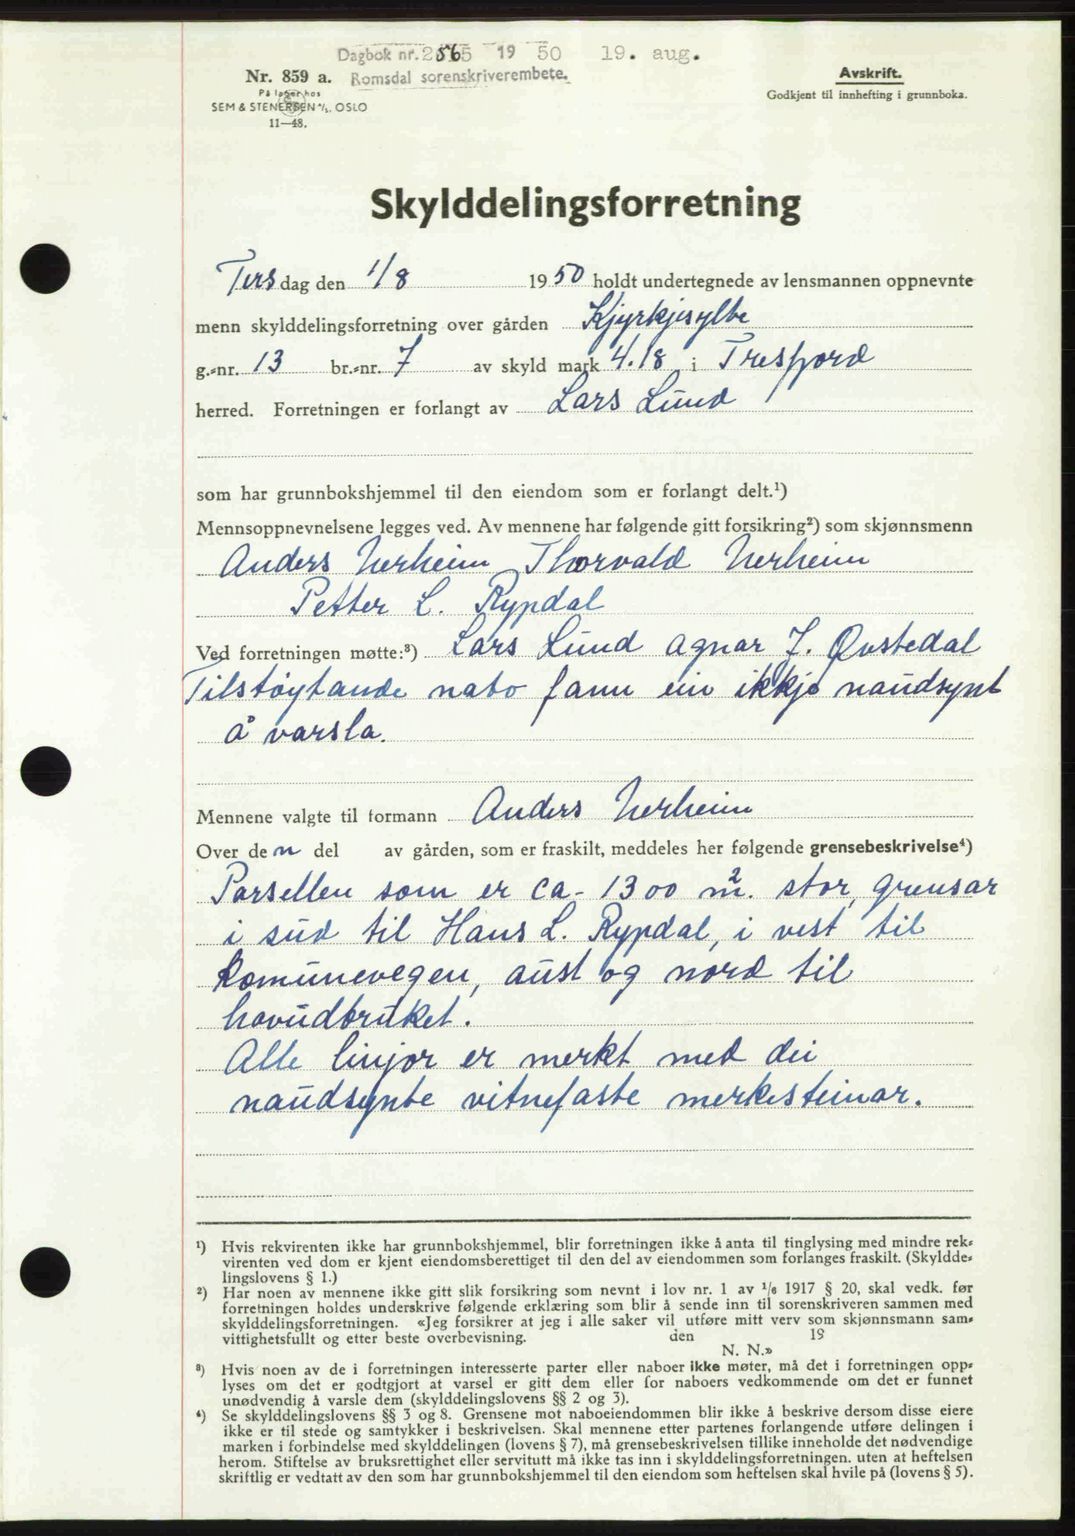 Dagbok nr. 2565 1950 19. aug.
Romsdal sorenskriverembete.
Nr. 859 a.
På lager hos
SEM & STENERSEN A/S. OSLO
11—48.
Avskrift.
Godkjent til innhefting i grunnboka.
Skylddelingsforretning
Tirsdag den 1/8 1950 holdt undertegnede av lensmannen oppnevnte
menn skylddelingsforretning over gården Kjyrkjesylte
g.-nr. 13 br.-nr. 7 av skyld mark 4.18 i Tresfjord
herred. Forretningen er forlangt av Lars Lund
som har grunnbokshjemmel til den eiendom som er forlangt delt.¹)
Mennsoppnevnelsene legges ved. Av mennene har følgende gitt forsikring²) som skjønnsmenn
Anders Nerheim Thorvald Nerheim
Petter L. Rypdal
Ved forretningen møtte:³) Lars Lund Agnar J. Øvstedal
Tilstøytande nabo fann ein ikkje naudsynt
å varsla.
Mennene valgte til formann Anders Nerheim
Over den del av gården, som er fraskilt, meddeles her følgende grensebeskrivelse⁴)
Parsellen som er ca. 1300 m². stor, grensar
i sud til Hans L. Rypdal, i vest til
komunevegen, aust og nord til
hovudbruket.
Alle linjor er merkt med dei
naudsynte vitnefaste merkesteinar.
¹) Hvis rekvirenten ikke har grunnbokshjemmel, blir forretningen ikke å anta til tinglysing med mindre rek-
virenten ved dom er kjent eiendomsberettiget til den del av eiendommen som forlanges fraskilt. (Skyldde-
lingslovens § 1.)
²) Har noen av mennene ikke gitt slik forsikring som nevnt i lov nr. 1 av 1/6 1917 § 20, skal vedk. før
forretningen holdes underskrive følgende erklæring som blir å sende inn til sorenskriveren sammen med
skylddelingsforretningen. «Jeg forsikrer at jeg i alle saker vil utføre mitt verv som skjønnsmann sam-
vittighetsfullt og etter beste overbevisning. den 19
N. N.»
³) Hvis noen av de i forretningen interesserte parter eller naboer ikke møter, må det i forretningen opp-
lyses om det er godtgjort at varsel er gitt dem eller for naboers vedkommende om det er funnet
unødvendig å varsle dem (skylddelingslovens §§ 2 og 3).
⁴) Se skylddelingslovens §§ 3 og 8. Grensene mot naboeiendommen blir ikke å beskrive dersom disse eiere
ikke er til stede og samtykker i beskrivelsen. Skal mennene etter partenes forlangende utføre delingen i
marken i forbindelse med skylddelingen (lovens § 7), må grensebeskrivelsen tillike inneholde det nødvendige
herom. Stiftelse av bruksrettighet eller servitutt må ikke tas inn i skylddelingsforretningen. uten at heftelsen
skriftlig er vedtatt av den som har grunnbokshjemmel til den eiendom som heftelsen skal hvile på (lovens § 5).